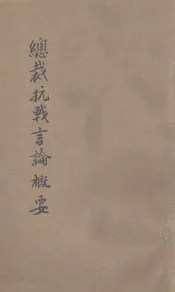 總裁抗戰言論概要